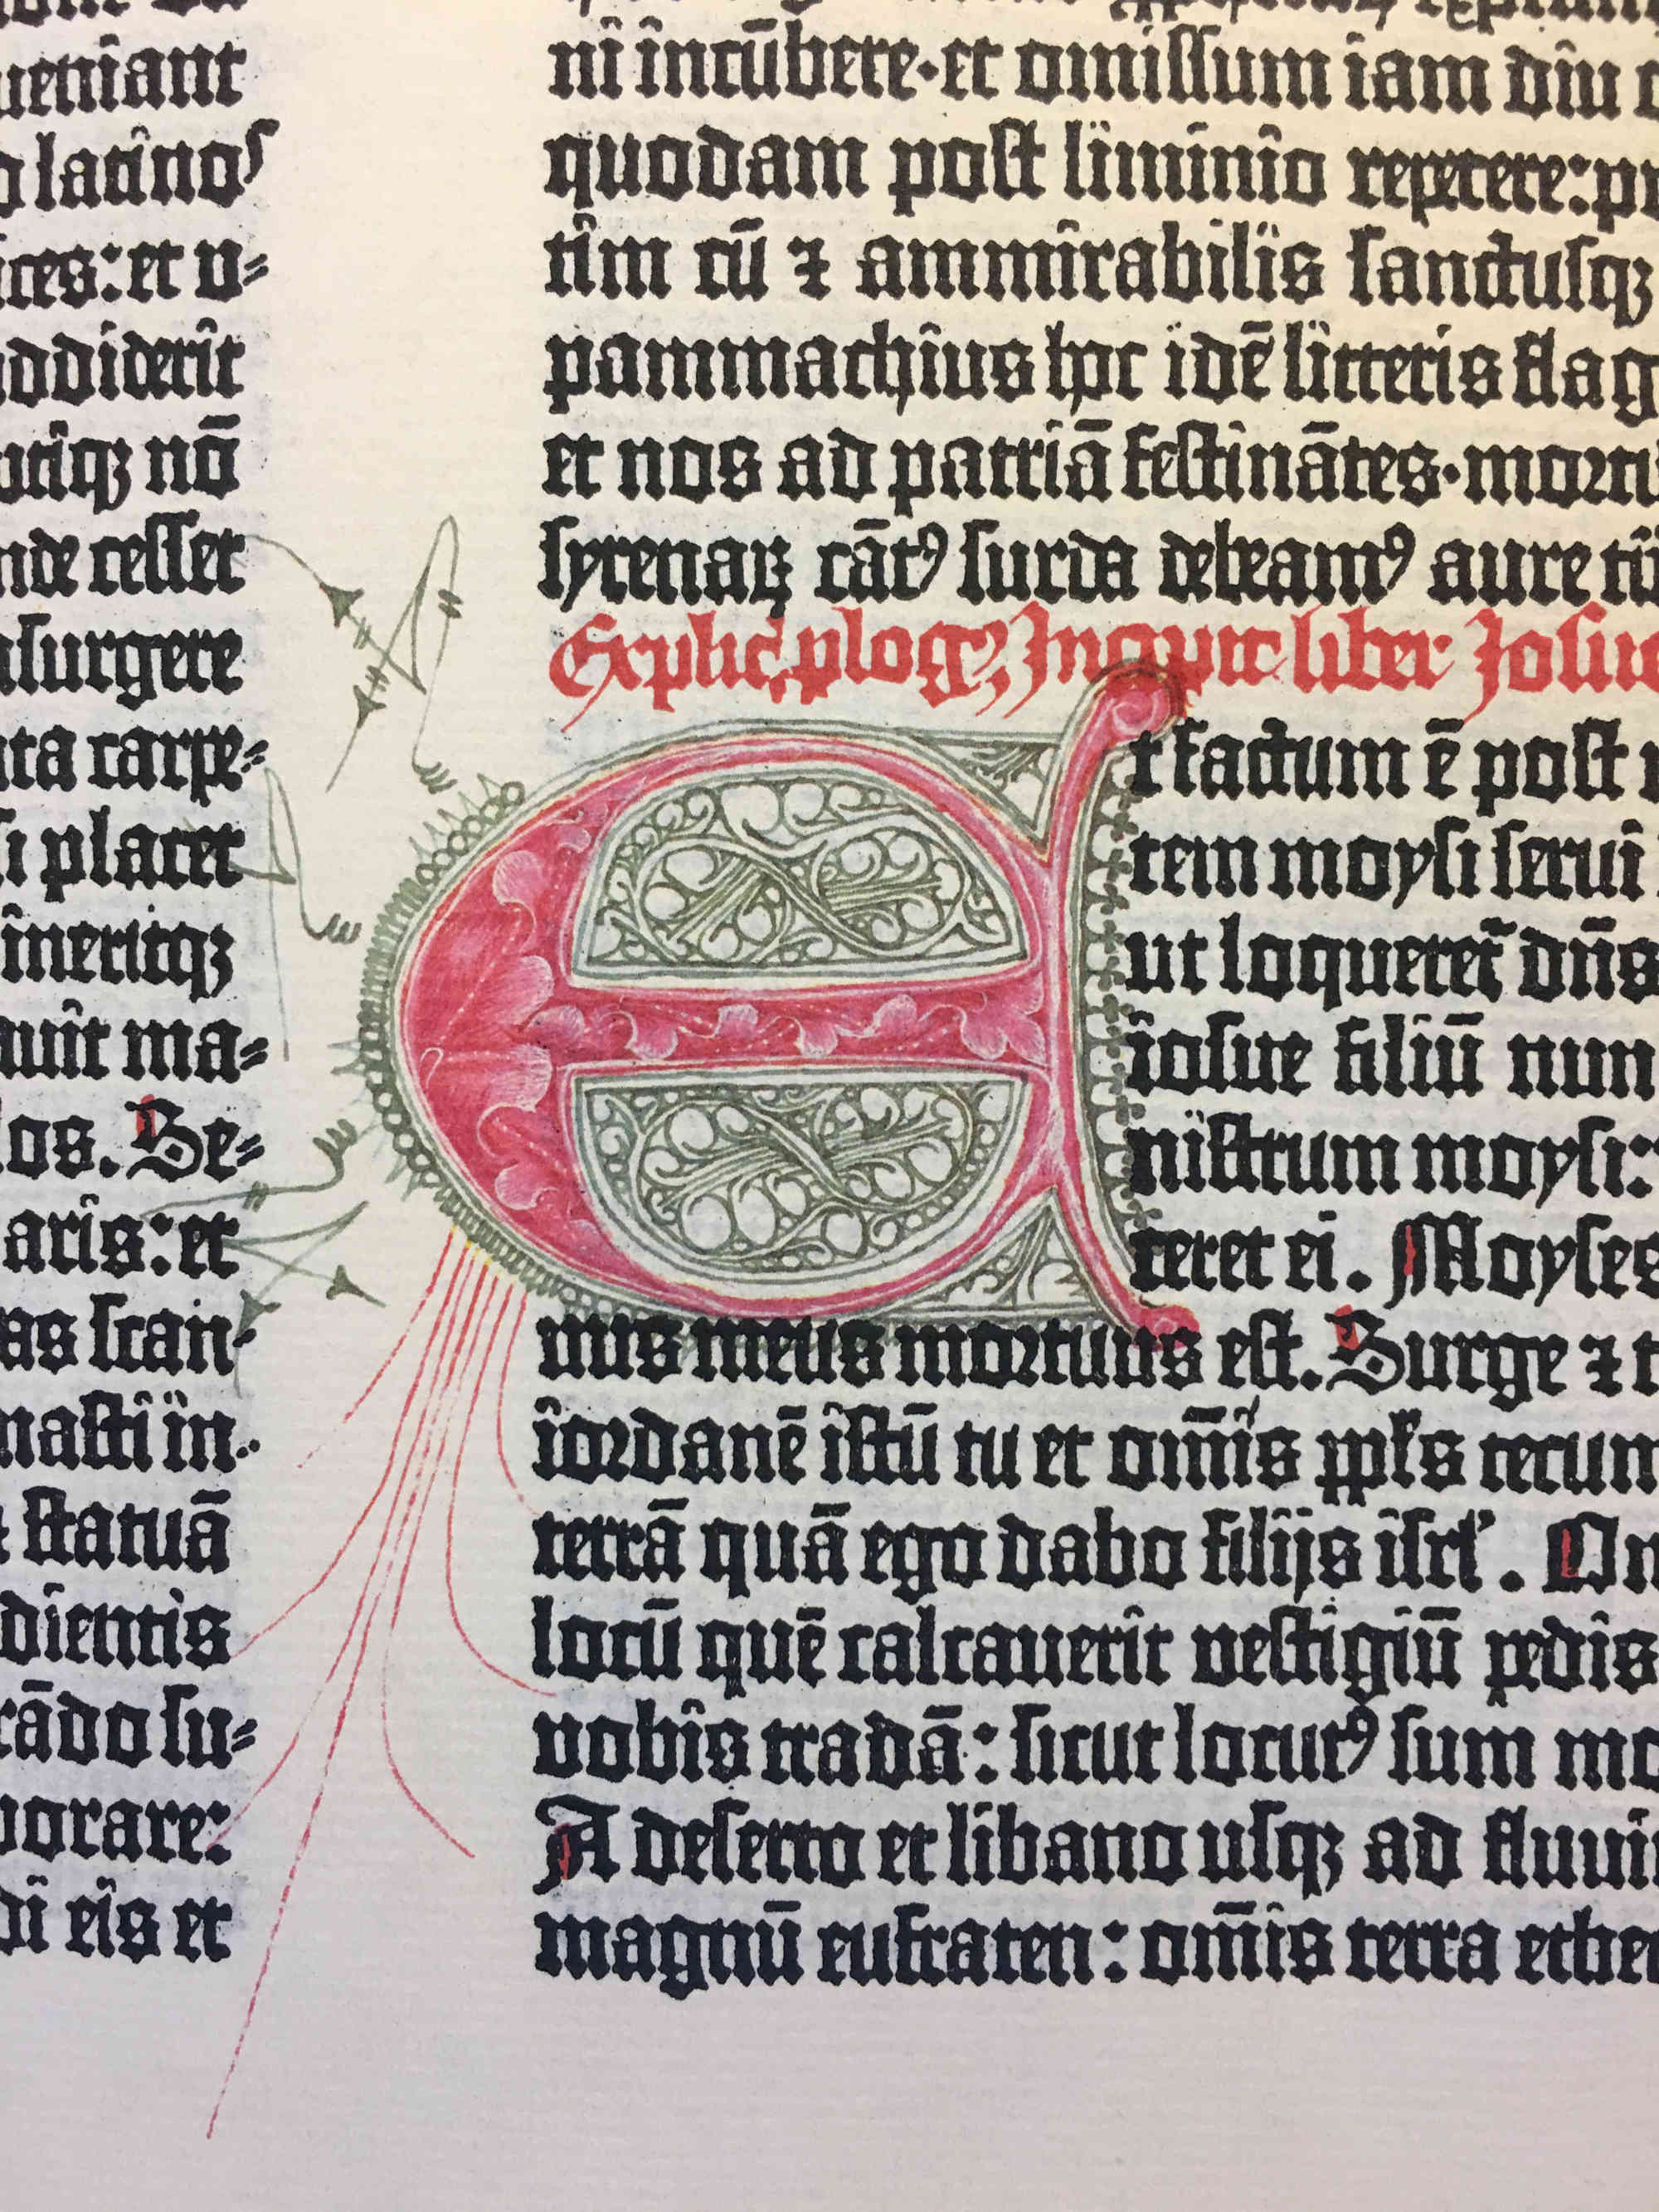 ueniant
latinos
ices: et v⸗
addiderit
utiqꝫ nō
nde cesset
nsurgere
ta carpe⸗
si placet
ineritqꝫ
auit ma⸗
los. Se⸗
aris: et
as scan⸗
nasti in⸗
statuā
dientis
rādo su⸗
orare:
di eis et
ni incūbere·et omissum iam diu
quodam post liminio repetere:
tim cū ⁊ ammirabilis sanctusqꝫ
pammachius hoc idē litteris flag
et nos ad patriā festinātes·morti
syrenaꝝ cātꝰ surda debeamꝰ aure
Explic̄ ꝓlogꝰ, Incipit liber Josue
Et factum ē post
tem moysi serui
ut loqueret᷑ dn̄s
iosue filiū nun
nistrum moysi:
ceret ei. Moyses
uus meus mortuus est. Surge ⁊ t
iordanē istū tu et om̄is pp̄ls tecum
terrā quā ego dabo filijs isrl’. Om
locū quē calcauerit vestigiū pedis
vobis tradā: sicut locutꝰ sum mo
A deserto et libano usqꝫ ad fluui
magnū eufraten: om̄is terra ethe